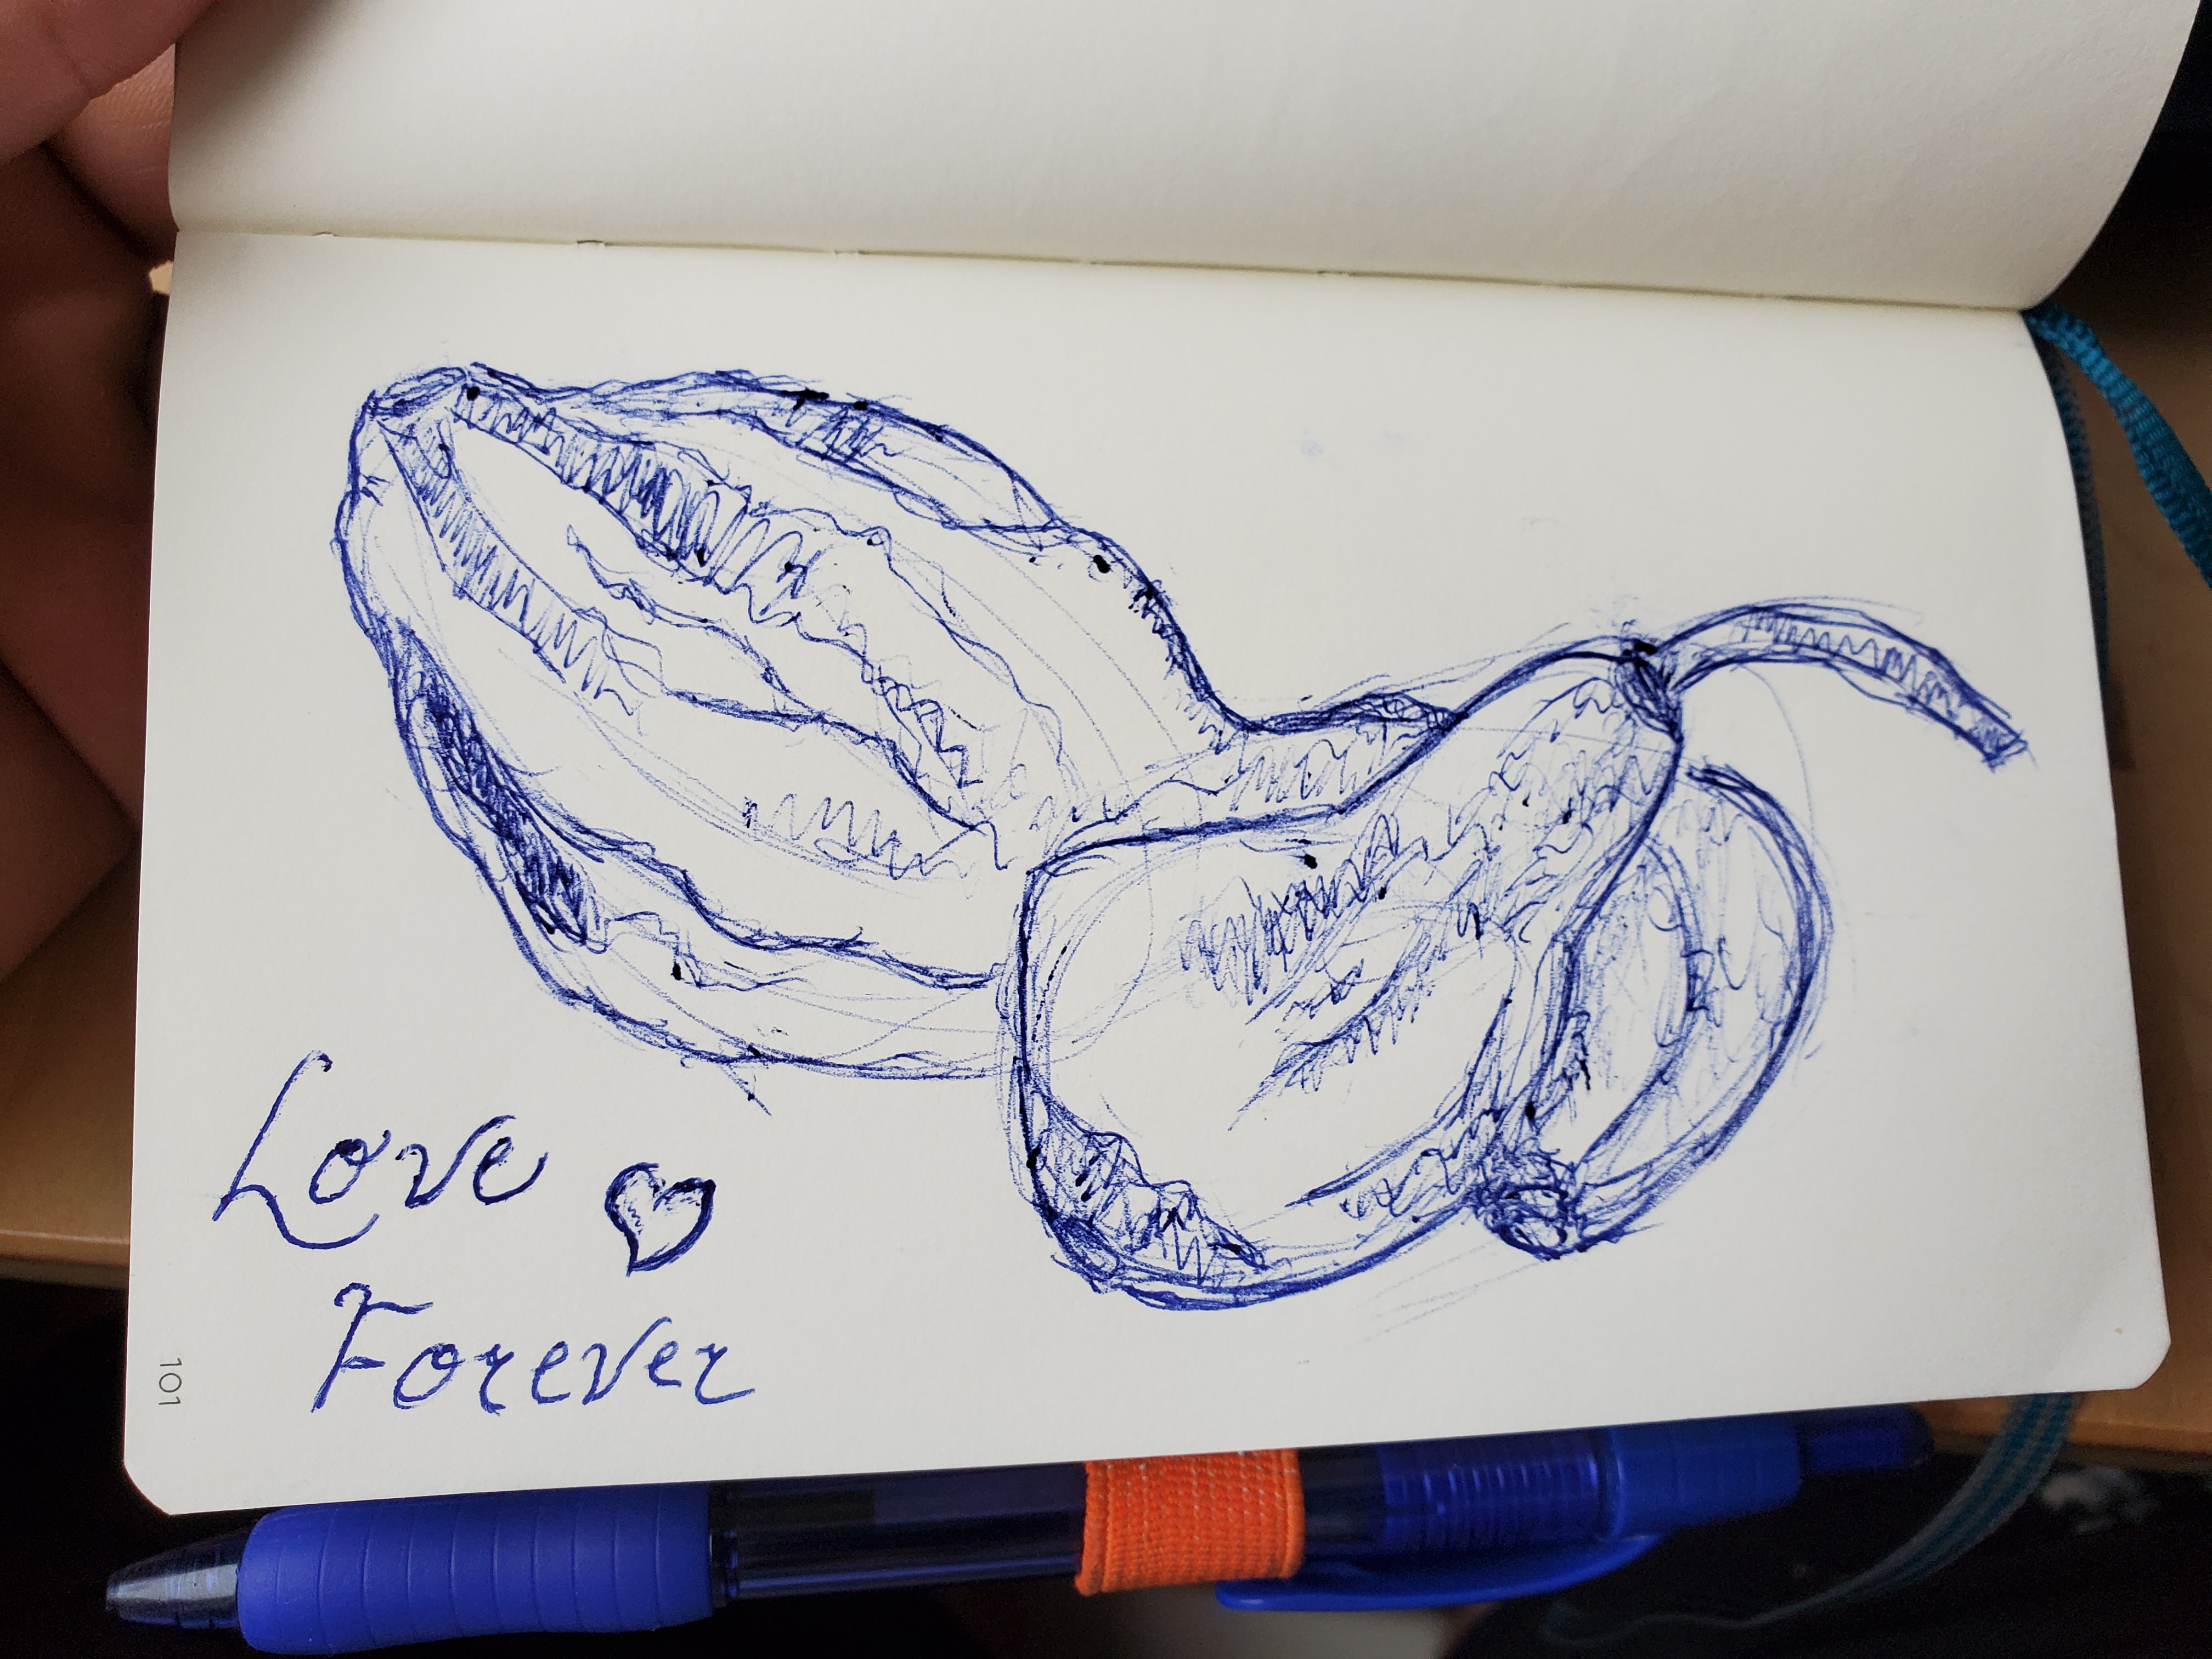 Love
Forever
101